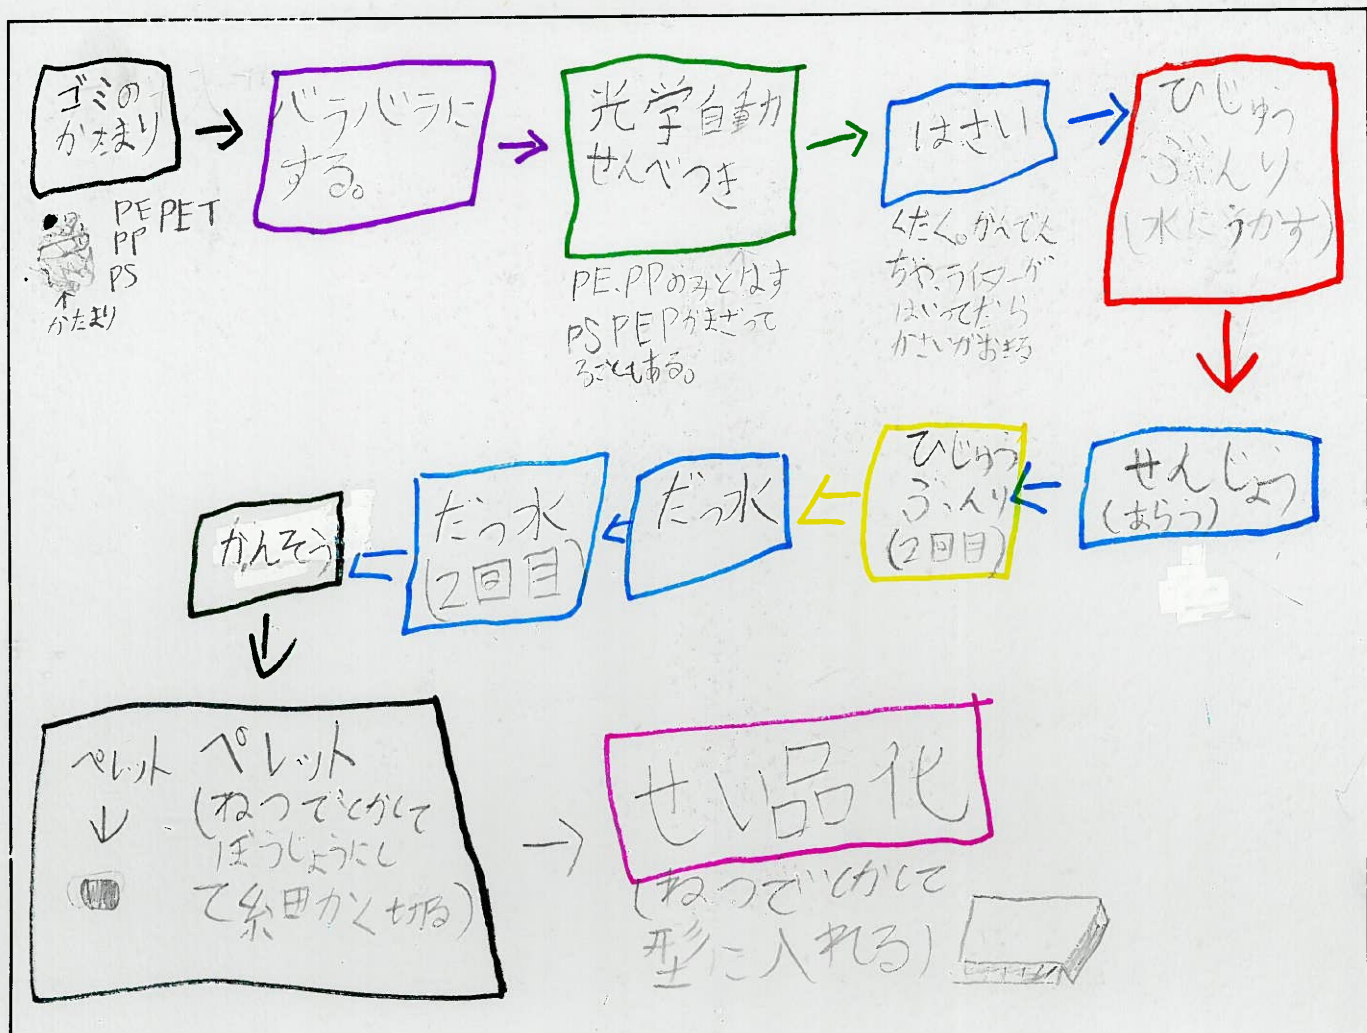 ゴミの
かたまり
PE PET
PP
PS
かたまり
バラバラに
する。
光学自動
せんべつき
PE、PPのみとなす
PS PEPがまざって
ることもある。
はさい
くだく。かんでん
ちや、ライターが
はいってたら
かさいがおきる
ひじゅう
ぶんり
(水にうかす)
せんじょう
(あらう)
ひじゅう
ぶんり
(2回目)
だっ水
だっ水
(2回目)
かんそう
ペレット
ペレット
(ねつでとかして
ぼうじょうにし
て細かく切る)
せい品化
(ねつでとかして
型に入れる)